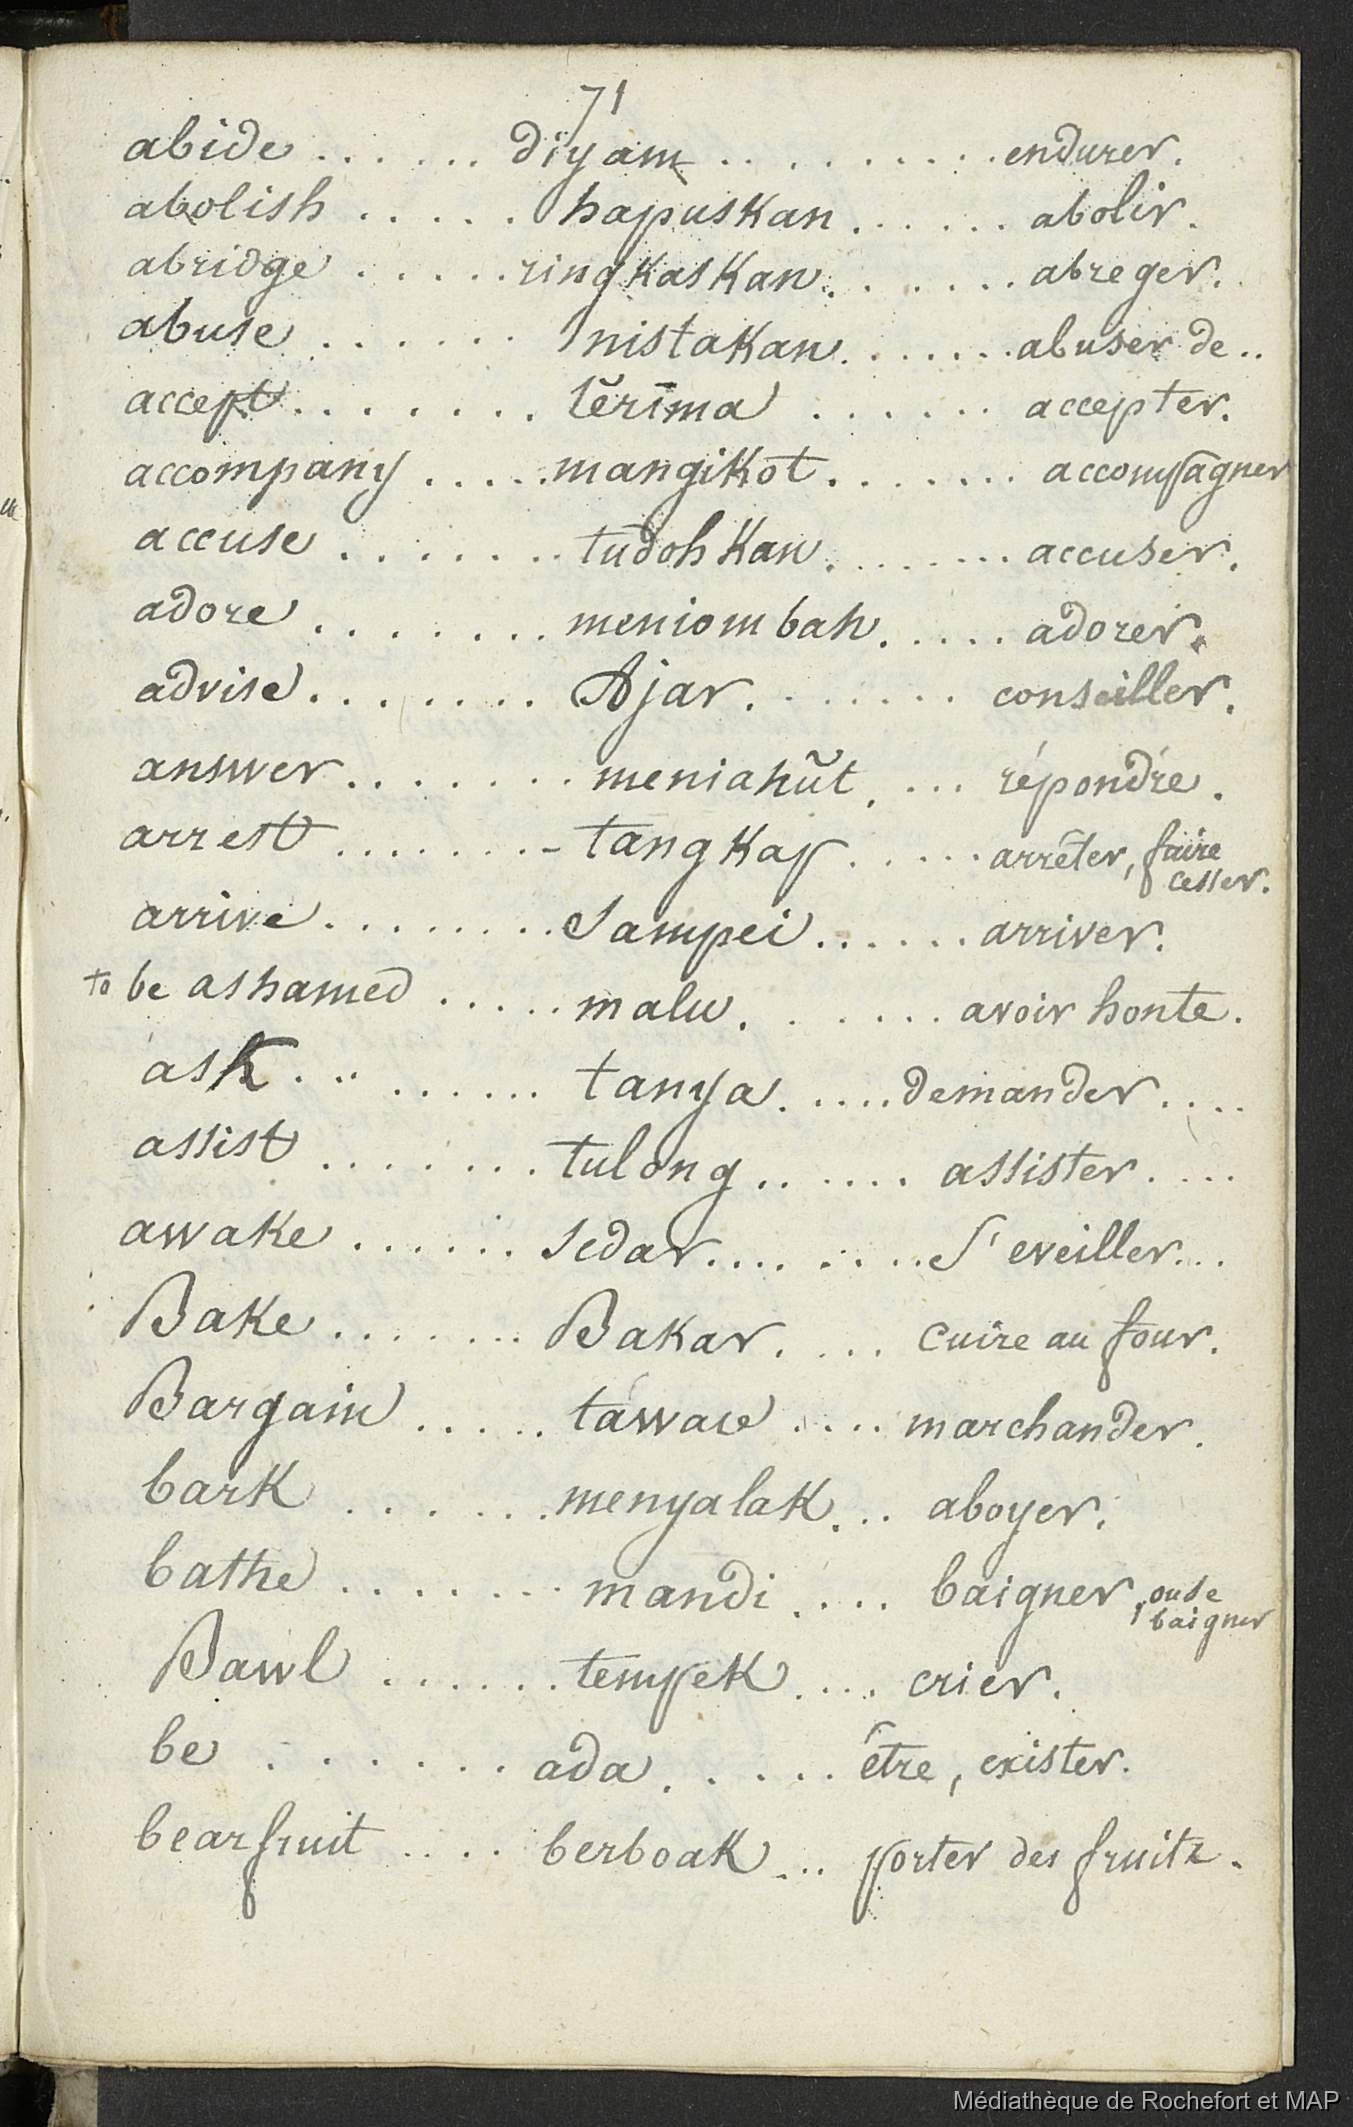 71
abide ...... diyam .......... endurer.
abolish ..... hapuskan ...... abolir.
abridge ..... ringkaskan ....... abreger.
abuse ...... nistakan ....... abuser de ..
accept ....... tĕrīma ...... accepter.
accompany ..... mangikot ....... accompagner
accuse ....... tudohkan ....... accuser.
adore ....... meniombah ..... adorer.
advise ....... Ajar ....... conseiller.
answer ....... meniahŭt .... répondre.
arrest ....... tangkap ..... arrêter, faire
cesser.
arrive ........ Sampei ...... arriver.
to be ashamed ..... malu ...... avoir honte.
ask ......... tanya ..... demander ....
assist ....... tulong ...... assister ....
awake ...... sedar ....... S'eveiller ...
Bake ....... Bakar .... cuire au four.
Bargain ..... táwaw .... marchander.
bark ...... menyalak ... aboyer.
bathe ....... mandi .... baigner, ou se
baigner
Bawl ...... tempek .... crier.
be ...... ada ..... être, exister.
bear fruit .... berboak ... porter des fruits.
Médiathèque de Rochefort et MAP